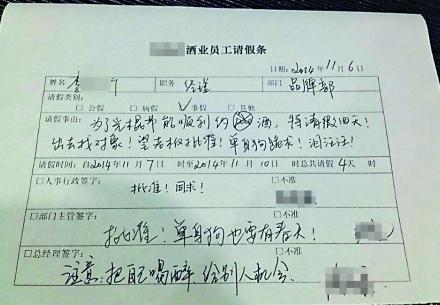 酒业员工请假条
日期：2014年11月6日
姓名 李 职务 经理 部门 品牌部
请假类别：
□公假 □病假 ☑事假 □其他
请假事由：为了光棍节能顺利约酒，特请假四天！
出去找对象！望各权批准！单身狗跪求！泪注注！
请假时间：自2014年11月7日 时至2014年11月10日 时总共请假4天 时
□人事行政签字： □不准
批准！同求！
□部门主管签字： □不准
批准！单身狗也要有春天！
□总经理签字： □不准
注意：把自己喝醉，给别人机会